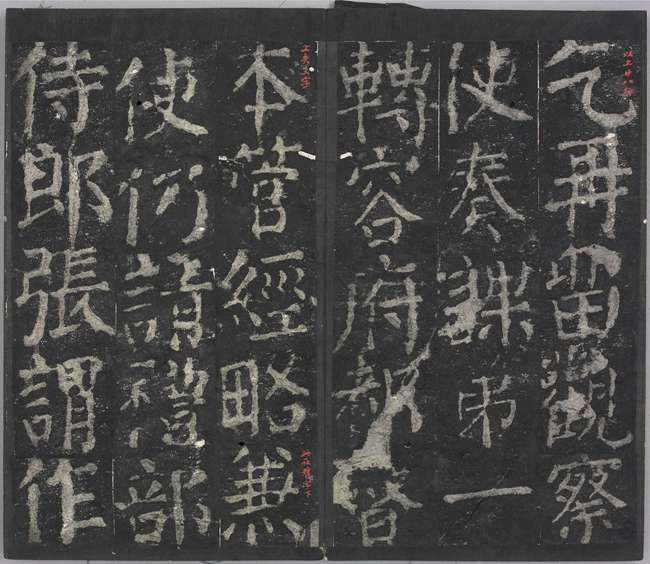 乞再留觀察
使奏課弟一
轉容府都督
本管經略兼
使仍請禮部
侍郎張謂作